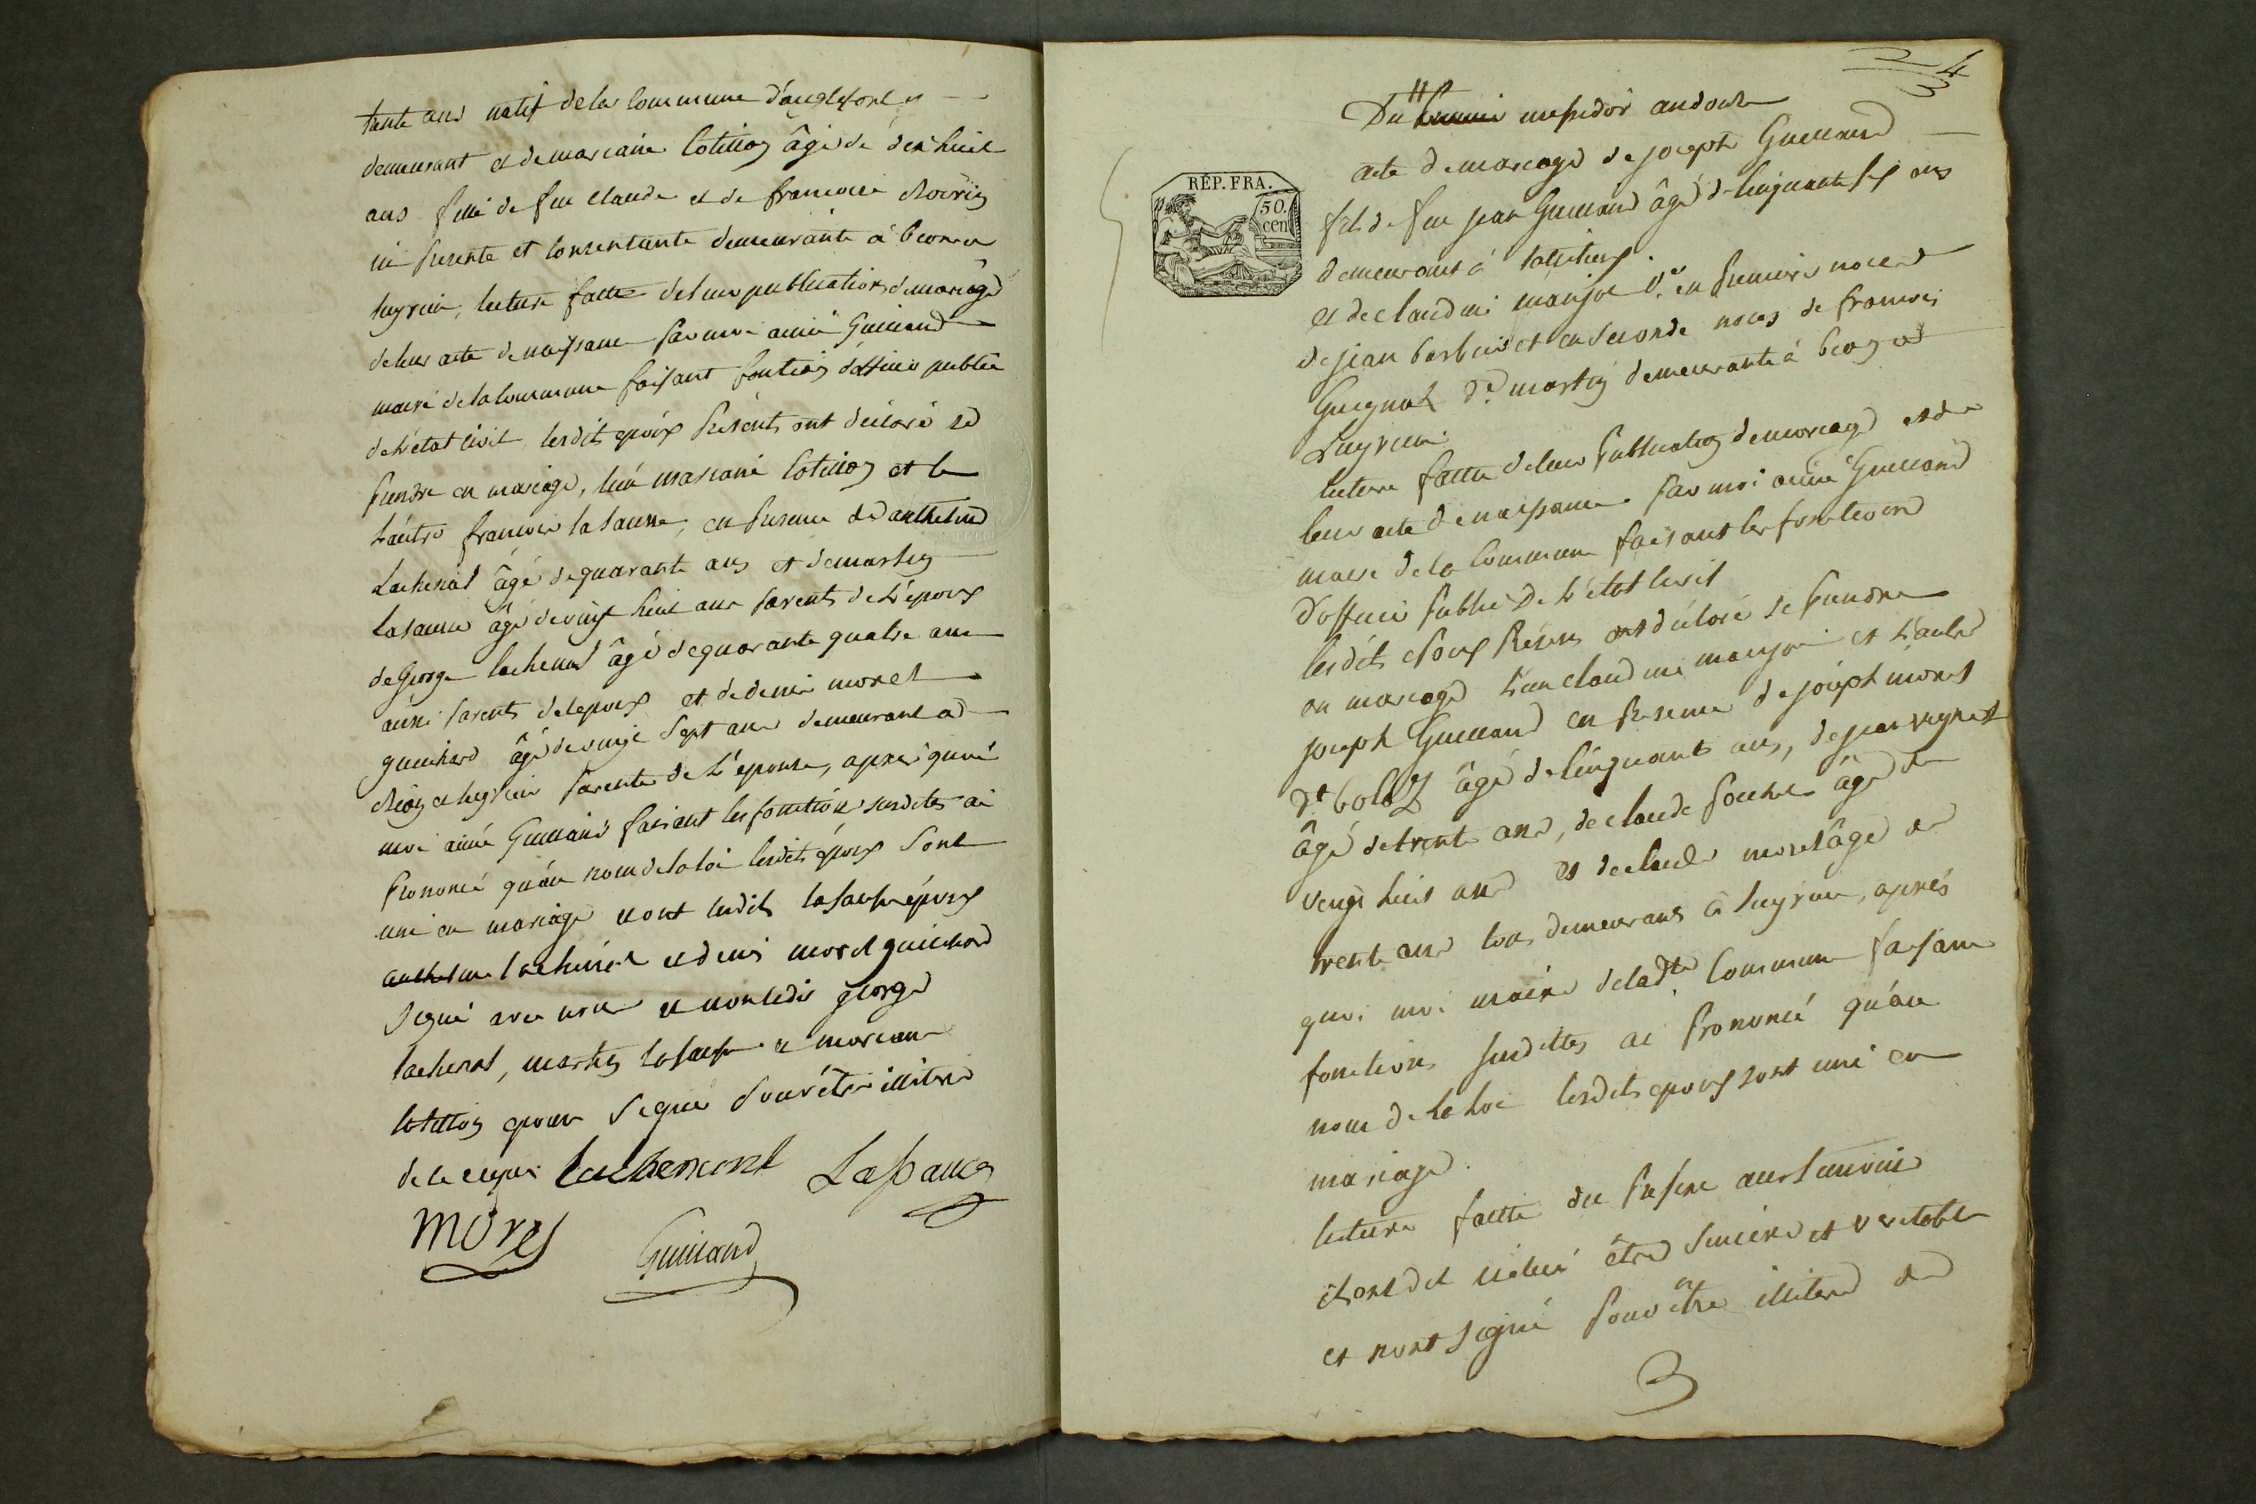 tante ans natif de la Commune d'anglefort y
demeurant et de mariane Cotillon âgé de dix huit
ans fille de feu Claude et de francoise
ici presente et Consentante demeurante à beon et
luyrieu, lecture faitte de leur publication de mariage
de leur acte de naissance par moi aimé Guilland
maire de la Commune faisant fontion d'officier publice
de l'état Civil lesdits epoux Présents ont déclaré se
prendre en mariage, l'un mariane Cotillon et le
L'autre francois lasausse, en presence de anthelme
Lachenal âgé de quarante ans et de martin
Lasausse âgé de vingt huit ans parents de L'époux
de George lachenal âgé de quarante quatre ans
aussi parents de lepoux et de denis morel
guichard âgé de vingt sept ans demeurant a
beon et luyrieu parents de L'epouse, aprés quoi
moi aimé Guilland faisant les fonction susdites ai
Prononcé qu'au nom de la loi lesdits époux Sont
uni en mariage et ont lesdits lasausse époux
anthelme lachenal et denis morel guichard
Signé avec nous et non ledit george
lachenal, martin lasausse et mariane
Cotillon epouse Signé pour étre illitere
de ce enquis Lachenal Lasauce
morel
Guilland
4
3
Du 11 messidor an douze
acte de mariage de joseph Guilland
RÉP. FRA.
50.
cen
fils de feu jean Guilland âgé de Cinquante six ans
demeurant à
et de Claudine manjot Ve. en premiere noces
de jean barbier et en seconde noces de francois
Guignat dt. martin demeurante à beon et
Luyrieu
lecture faitte de leur Publication de mariage et de
leur acte de naissance par moi aimé Guilland
maire de la Commune faisant les fonctions
d'officier Public De L'état Civil
lesdits Epoux Présens ont déclaré se prendre
en mariage L'un claudine manjot et L'autre
joseph Guilland en Presence de joseph morel
dt. boloz âgé de Cinquante ans, de jean
âgé de trente ans, de claude pochet âgé de
vengt huit ans et de claude morel âgé de
trente ans tous demeurans à luyrieu, aprés
quoi moi maire de ladte. Commune faisant
fonctions susdittes ai prononcé qu'au
nom de la Loi lesdits epoux sont uni en
mariage.
lecture faitte du présent
être sincere et veritable
et nont Signé pour étre illitere de